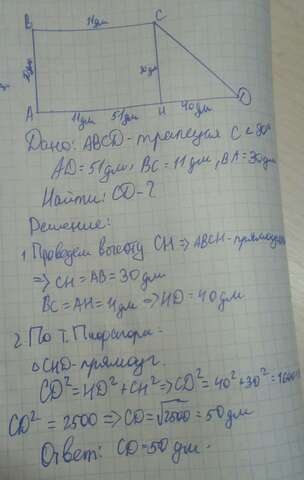 B 11дм C
30дм 30дм
A 11дм 51дм H 40дм D
Дано: ABCD-трапеция
AD=51дм, BC=11дм, BA=30дм
Найти: CD-?
Решение:
1. Проведем высоту CH => ABCH-прямоуг
=> CH=AB=30дм
BC=AH=11дм => HD=40дм
2. По т. Пифагора-
△CHD-прямоуг.
CD²=HD²+CH² => CD²=40²+30²=1600
CD²=2500 => CD=√2500=50дм
Ответ: CD=50дм.